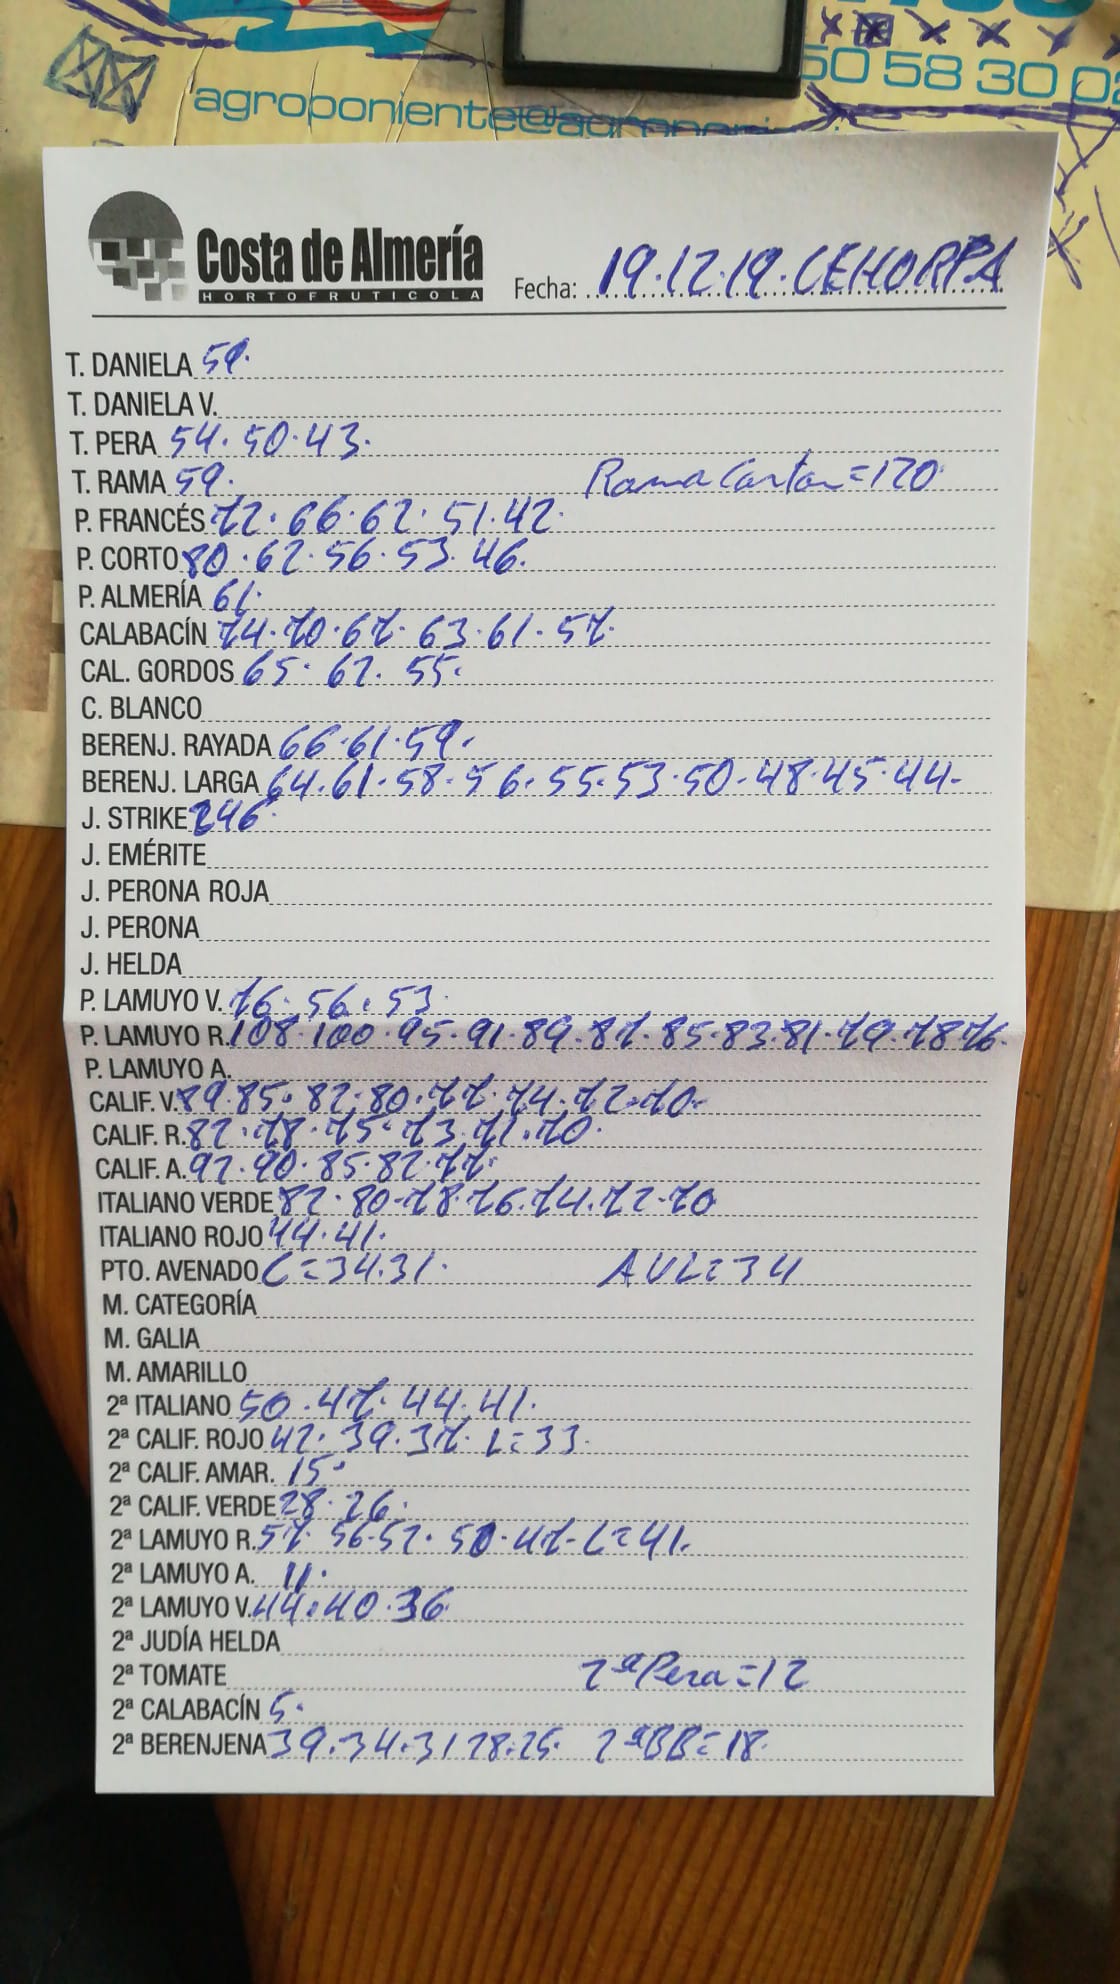 50 58 30 02
agroponiente@agroponi
Costa de Almería
HORTOFRUTICOLA
Fecha: 19.12.19. CEHORPA
T. DANIELA 59.
T. DANIELA V.
T. PERA 54. 50. 43.
T. RAMA 59. Rama Carton = 120
P. FRANCÉS 72. 66. 62. 51. 42.
P. CORTO 80. 62. 56. 53. 46.
P. ALMERÍA 61.
CALABACÍN 74. 70. 67. 63. 61. 57.
CAL. GORDOS 65. 62. 55.
C. BLANCO
BERENJ. RAYADA 66. 61. 59.
BERENJ. LARGA 64. 61. 58. 56. 55. 53. 50. 48. 45. 44.
J. STRIKE 246.
J. EMÉRITE
J. PERONA ROJA
J. PERONA
J. HELDA
P. LAMUYO V. 76. 56. 53.
P. LAMUYO R. 108. 100. 95. 91. 89. 87. 85. 83. 81. 79. 78. 76.
P. LAMUYO A.
CALIF. V. 89. 85. 82. 80. 77. 74. 72. 70.
CALIF. R. 82. 78. 75. 73. 71. 70.
CALIF. A. 92. 90. 85. 82. 77.
ITALIANO VERDE 82. 80. 78. 76. 74. 72. 70
ITALIANO ROJO 44. 41.
PTO. AVENADO C = 34. 31. AVL = 34
M. CATEGORÍA
M. GALIA
M. AMARILLO
2ª ITALIANO 50. 47. 44. 41.
2ª CALIF. ROJO 42. 39. 37. L = 33.
2ª CALIF. AMAR. 15.
2ª CALIF. VERDE 28. 26.
2ª LAMUYO R. 57. 56. 52. 50. 47. L = 41.
2ª LAMUYO A. 11.
2ª LAMUYO V. 44. 40. 36
2ª JUDÍA HELDA
2ª TOMATE 2ª Pera = 12
2ª CALABACÍN 5.
2ª BERENJENA 39. 34. 31 28. 25. 2ª BB = 18.